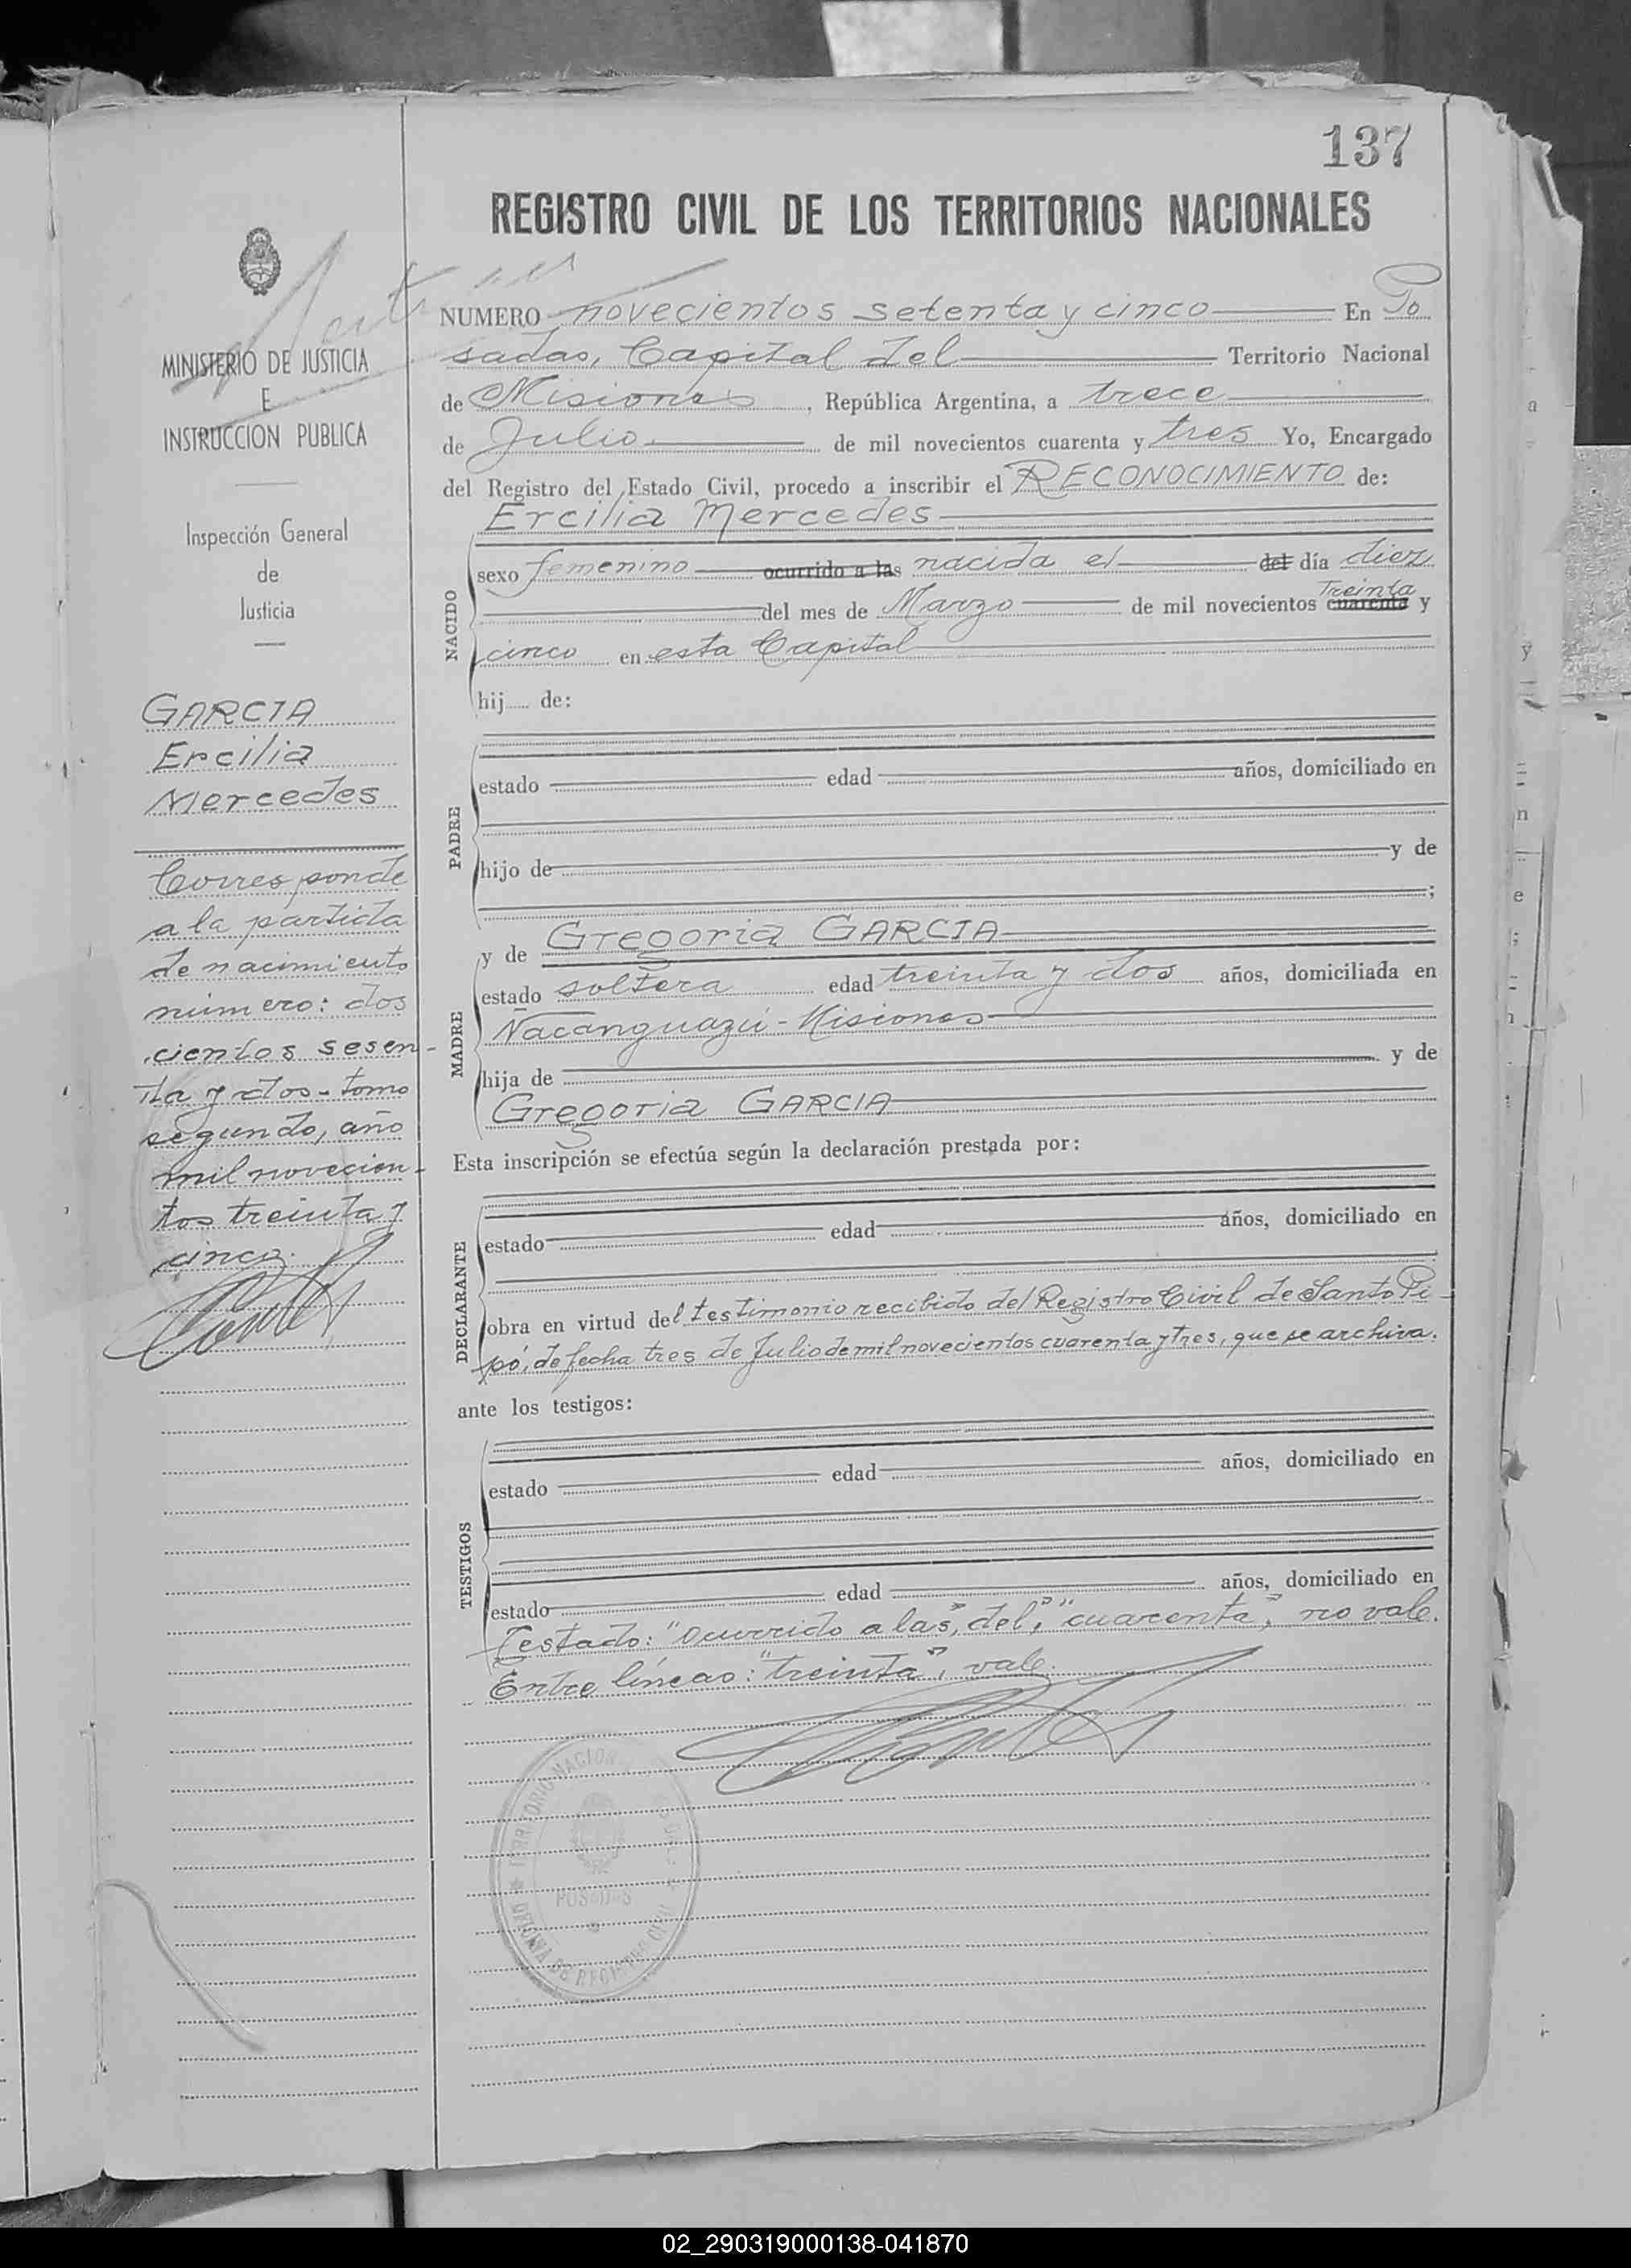 137
REGISTRO CIVIL DE LOS TERRITORIOS NACIONALES
MINISTERIO DE JUSTICIA
E
INSTRUCCION PUBLICA
Inspección General
de
Justicia
GARCIA
Ercilia
Mercedes
Corresponde
a la partida
de nacimiento
número: dos
cientos sesen-
ta y dos - tomo
segundo, año
mil novecien-
tos treinta y
cinco.
NUMERO novecientos setenta y cinco En Po
sadas, Capital del Territorio Nacional
de Misiones, República Argentina, a trece
de Julio de mil novecientos cuarenta y tres Yo, Encargado
del Registro del Estado Civil, procedo a inscribir el RECONOCIMIENTO de:
Ercilia Mercedes
NACIDO
sexo femenino ocurrido a las nacida el del día diez
del mes de Marzo de mil novecientos cuarenta Treinta y
cinco en esta Capital
hij..... de:
PADRE
estado edad años, domiciliado en
hijo de y de
;
MADRE
y de Gregoria GARCIA
estado soltera edad treinta y dos años, domiciliada en
Ñacanguazú - Misiones
hija de y de
Gregoria GARCIA
Esta inscripción se efectúa según la declaración prestada por:
DECLARANTE
estado edad años, domiciliado en
obra en virtud del testimonio recibido del Registro Civil de Santo Pi-
pó, de fecha tres de Julio de mil novecientos cuarenta y tres, que se archiva.
ante los testigos:
TESTIGOS
estado edad años, domiciliado en
estado edad años, domiciliado en
Testado: "Ocurrido a las", "del", "cuarenta", no vale.
Entre líneas: "treinta", vale.
TERRITORIO NACIONAL
POSADAS
OFICINA DE REGISTRO CIVIL
02_290319000138-041870